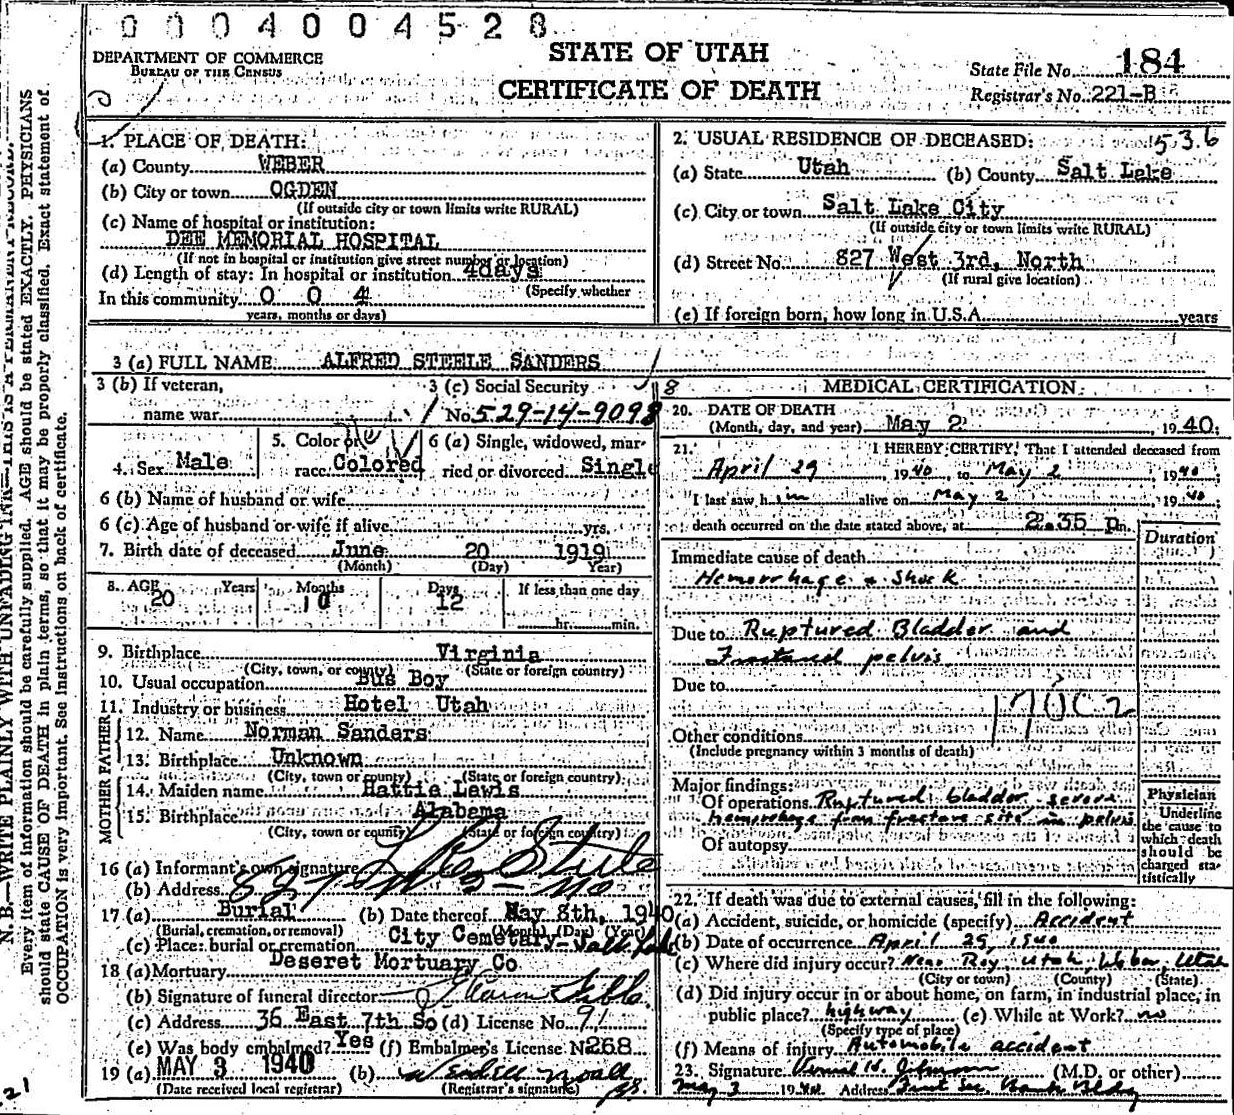 0004004528
DEPARTMENT OF COMMERCE
BUREAU OF THE CENSUS
STATE OF UTAH
CERTIFICATE OF DEATH
State File No. 184
Registrar's No. 221-B
N. B.—WRITE PLAINLY WITH UNFADING INK—THIS IS A PERMANENT RECORD.
Every item of information should be carefully supplied. AGE should be stated EXACTLY. PHYSICIANS
should state CAUSE OF DEATH in plain terms, so that it may be properly classified. Exact statement of
OCCUPATION is very important. See instructions on back of certificate.
1. PLACE OF DEATH:
(a) County WEBER
(b) City or town OGDEN
(If outside city or town limits write RURAL)
(c) Name of hospital or institution:
DEE MEMORIAL HOSPITAL
(If not in hospital or institution give street number or location)
(d) Length of stay: In hospital or institution 4days
(Specify whether
In this community 0 0 4
years, months or days)
2. USUAL RESIDENCE OF DECEASED: 536
(a) State Utah (b) County Salt Lake
(c) City or town Salt Lake City
(If outside city or town limits write RURAL)
(d) Street No. 827 West 3rd, North
(If rural give location)
(e) If foreign born, how long in U.S.A. years
3 (a) FULL NAME ALFRED STEELE SANDERS
3 (b) If veteran,
name war
3 (c) Social Security
No. 529-14-9098
4. Sex Male
5. Color or
race Colored
6 (a) Single, widowed, mar-
ried or divorced Single
6 (b) Name of husband or wife
6 (c) Age of husband or wife if alive yrs.
7. Birth date of deceased June 20 1919
(Month) (Day) (Year)
8. AGE Years Months Days If less than one day
20 10 12
hr. min.
9. Birthplace Virginia
(City, town, or county) (State or foreign country)
10. Usual occupation Bus Boy
11. Industry or business Hotel Utah
FATHER
12. Name Norman Sanders
13. Birthplace Unknown
(City, town or county) (State or foreign country)
MOTHER
14. Maiden name Hattie Lewis
15. Birthplace Alabama
(City, town or county) (State or foreign country)
16 (a) Informant's own signature Steele
(b) Address 827 W 3 - No
17 (a) Burial (b) Date thereof May 8th, 1940
(Burial, cremation, or removal) (Month) (Day) (Year)
(c) Place: burial or cremation City Cemetary-Salt Lake
18 (a) Mortuary Deseret Mortuary Co
(b) Signature of funeral director
(c) Address 36 East 7th So (d) License No. 91
(e) Was body embalmed? Yes (f) Embalmer's License No. 268
19 (a) MAY 3 1940 (b)
(Date received local registrar) (Registrar's signature)
21
18
MEDICAL CERTIFICATION
20. DATE OF DEATH
(Month, day, and year) May 2 1940
21. I HEREBY CERTIFY, That I attended deceased from
April 29 1940, to May 2 1940
I last saw him alive on May 2 1940
death occurred on the date stated above, at 2.35 p.m.
Duration
Immediate cause of death
Hemorrhage & Shock
Due to Ruptured Bladder and
Fractured pelvis
Due to
170C2
Other conditions
(Include pregnancy within 3 months of death)
Major findings:
Of operations Ruptured bladder, severe
hemorrhage from fracture site in pelvis
Of autopsy
Physician
Underline
the cause to
which death
should be
charged sta-
tistically
22. If death was due to external causes, fill in the following:
(a) Accident, suicide, or homicide (specify) Accident
(b) Date of occurrence April 29, 1940
(c) Where did injury occur? Near Roy, Utah, Weber, Utah
(City or town) (County) (State)
(d) Did injury occur in or about home, on farm, in industrial place, in
public place? highway (e) While at Work? no
(Specify type of place)
(f) Means of injury Automobile accident
23. Signature (M.D. or other)
May 3 1940 Address First Sec Bank Bldg